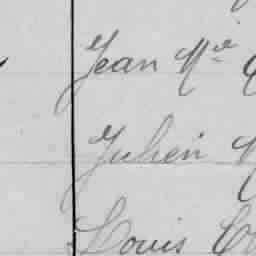 Jean Mie
Julien
Louis